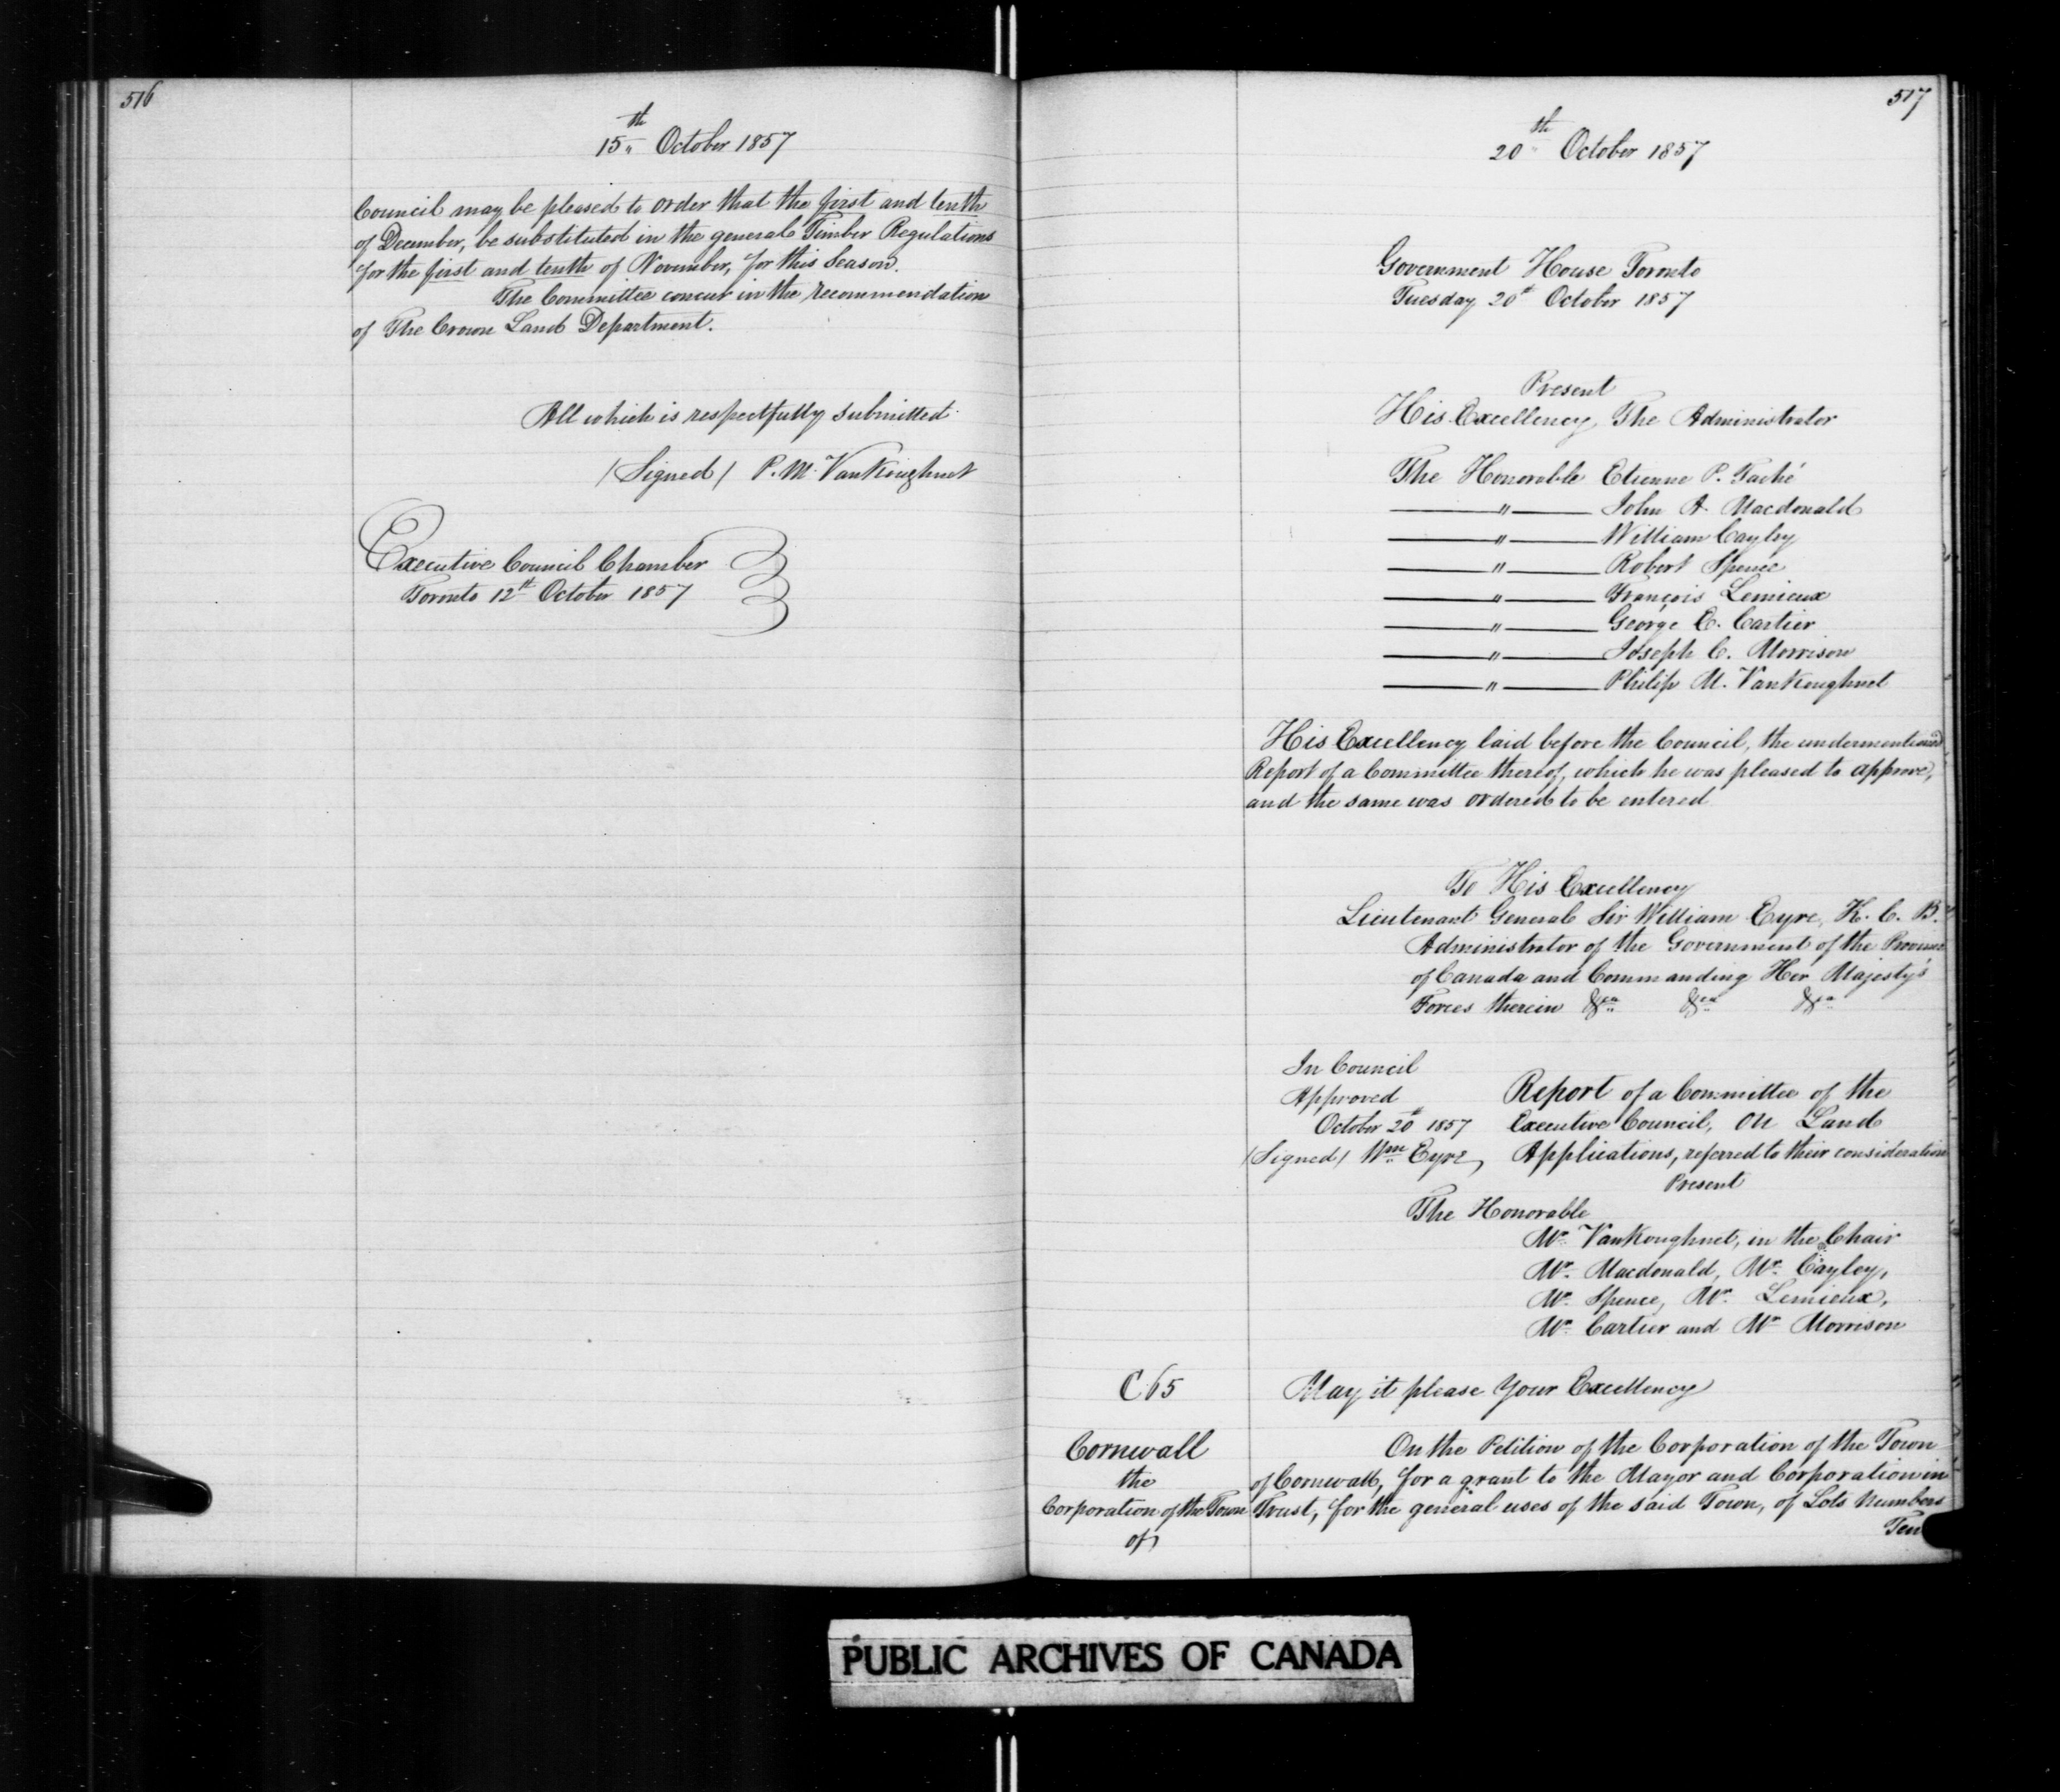 516
15th October 1857
Council may be pleased to order that the first and tenth
of December, be substituted in the general Timber Regulations
for the first and tenth of November, for this Season.
The Committee concur in the recommendation
of The Crown Land Department.
All which is respectfully submitted
(Signed) P. M. VanKoughnet
Executive Council Chamber
Toronto 12th October 1857
517
20th October 1857
Government House Toronto
Tuesday 20th October 1857
Present
His Excellency The Administrator
The Honorable Etienne P. Taché
—— " —— John A. Macdonald
—— " —— William Cayley
—— " —— Robert Spence
—— " —— François Lemieux
—— " —— George E. Cartier
—— " —— Joseph C. Morrison
—— " —— Philip M. VanKoughnet
His Excellency laid before the Council, the undermentioned
Report of a Committee thereof, which he was pleased to approve,
and the same was ordered to be entered
To His Excellency
Lieutenant General Sir William Eyre, K. C. B.
Administrator of the Government of the Province
of Canada and Commanding Her Majesty's
Forces therein &ca &ca &ca
In Council
Approved
October 20th 1857
(Signed) Wm Eyre,
Report of a Committee of the
Executive Council, on Land
Applications, referred to their consideration
Present
The Honorable
Mr. VanKoughnet, in the Chair
Mr. Macdonald, Mr. Cayley,
Mr. Spence, Mr. Lemieux,
Mr. Cartier and Mr Morrison
C 65
May it please Your Excellency
Cornwall
the
Corporation of the Town
of
On the Petition of the Corporation of the Town
of Cornwall, for a grant to the Mayor and Corporation in
Trust, for the general uses of the said Town, of Lots numbers
Ten
PUBLIC ARCHIVES OF CANADA